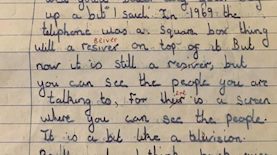 up a bit" I said. In 1969 the
teliphone was a square box thing
eciver
with a resiver on top of it. But
now it is still a resiver, but
you can see the people you are
talking to, For their is a screen
where you can see the people.
It is a bit like a tilivision.